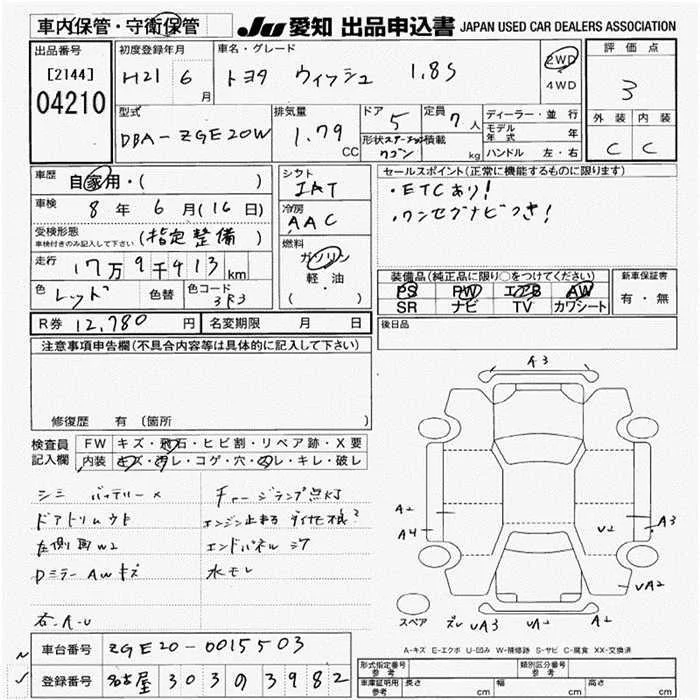 車内保管・守衛保管
JU 愛知 出品申込書 JAPAN USED CAR DEALERS ASSOCIATION
出品番号
[2144]
04210
初度登録年月
H21 6 月
車名・グレード
トヨタ ウィッシュ 1.8S
2WD
4WD
評価点
3
外装 内装
C C
型式
DBA-ZGE20W
排気量
1.79 CC
ドア
5
定員
7 人
形状 ステーションワゴン
積載 kg
ディーラー・並行
モデル年式 年
ハンドル 左・右
車歴
自家用・( )
車検
8 年 6 月(16 日)
受検形態
車検付きのみ記入して下さい
(指定整備)
走行
17万9千413 km
色
レッド
色替
色コード
3R3
シフト
IAT
冷房
AAC
燃料
ガソリン
軽・油
( ・ )
セールスポイント(正常に機能するものに限ります)
・ETCあり!
・ワンセグナビつき!
装備品(純正品に限り○をつけてください)
PS PW エアB AW
SR ナビ TV カワシート
新車保証書
有・無
R券 12,780 円
名変期限 月 日
後日品
注意事項申告欄(不具合内容等は具体的に記入して下さい)
修復歴 有(箇所 )
検査員
記入欄
FW キズ・飛石・ヒビ割・リペア跡・X要
内装 キズ・汚レ・コゲ・穴・スレ・キレ・破レ
シミ バッテリー× チャージランプ点灯
ドアトリムウキ エンジン止まる ダイナモ不良?
左側面W2 エンドパネルズレ
Dミラー AWキズ 水モレ
右-A-U
A3
A2
A4
U2
A3
UA2
スペア
ズレ UA3 UA2 A2
A-キズ E-エクボ U-凹み W-補修跡 S-サビ C-腐食 XX-交換済
車台番号 ZGE20-0015503
登録番号 名古屋 303 の 3982
形式指定番号
参考
類別区分番号
車庫証明用
参考
長さ cm 幅 cm 高さ cm